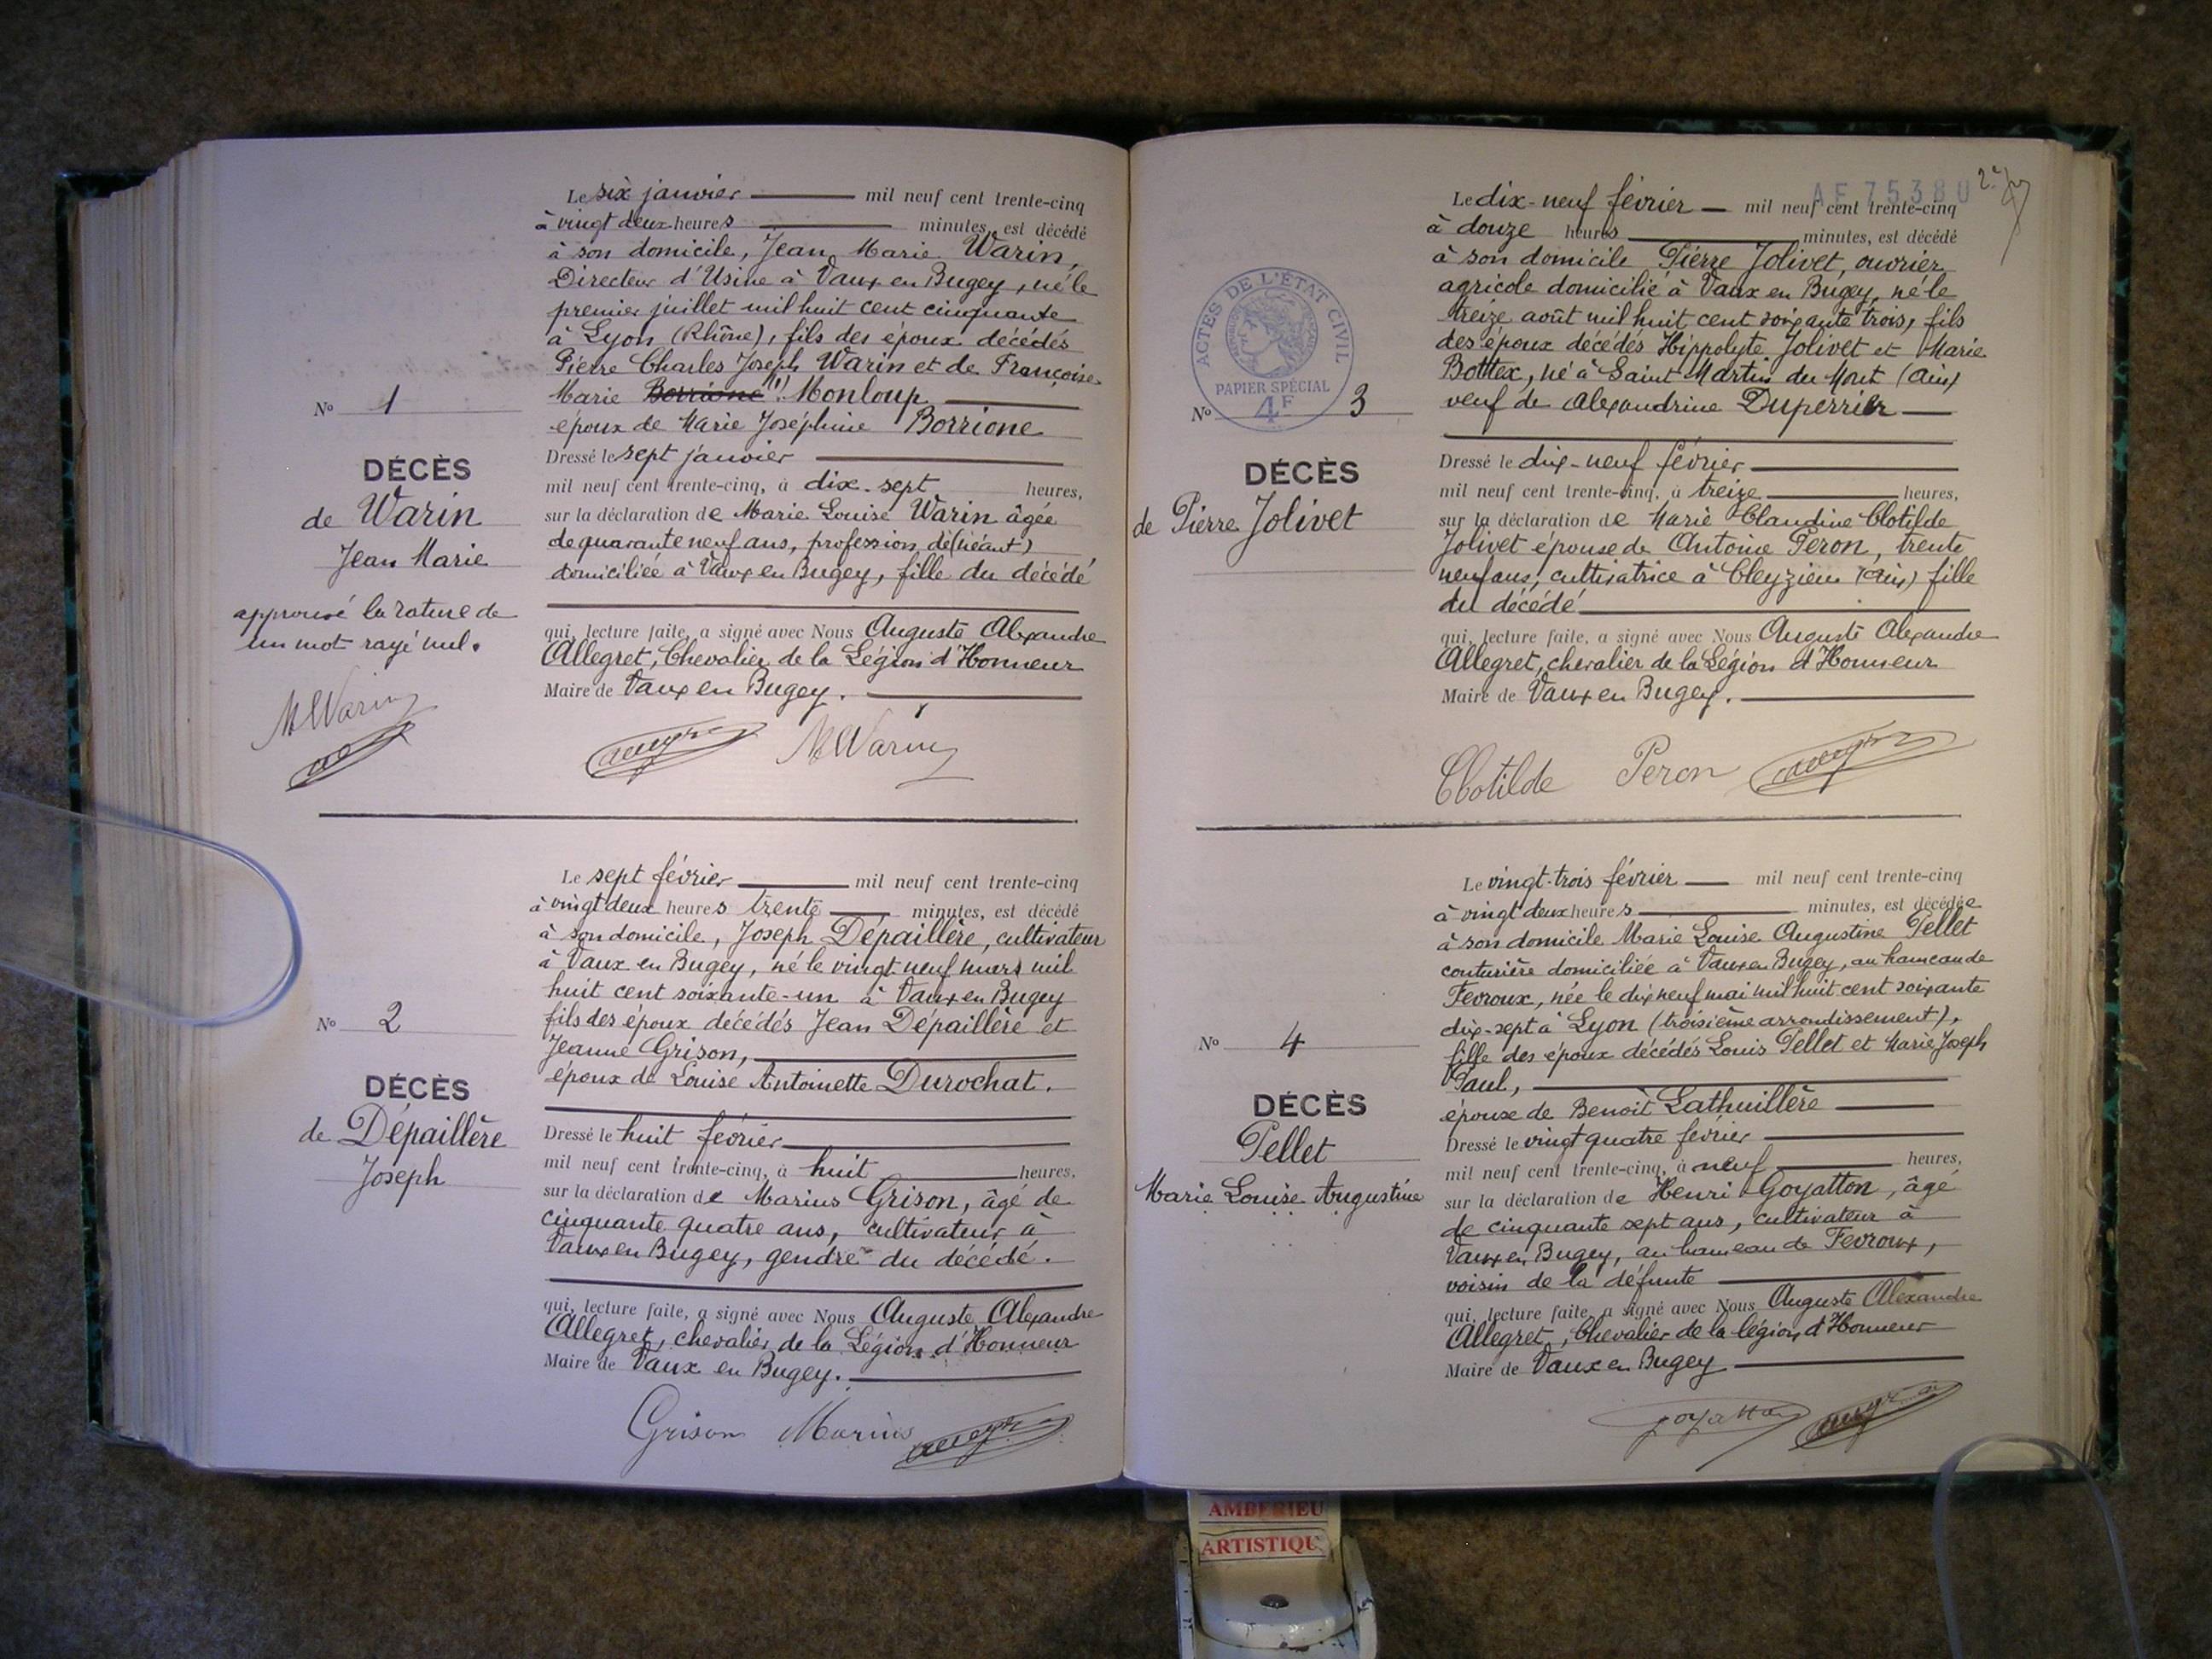 Le six janvier mil neuf cent trente-cinq
à vingt deux heures minutes, est décédé
à son domicile, Jean Marie Warin,
Directeur d'Usine à Vaux en Bugey, né le
premier juillet mil huit cent cinquante
à Lyon (Rhône), fils des époux décédés
Pierre Charles Joseph Warin et de Françoise
Marie Borrione (1) Monloup
époux de Marie Joséphine Borrione
Dressé le sept janvier
mil neuf cent trente-cinq, à dix-sept heures,
sur la déclaration de Marie Louise Warin âgée
de quarante neuf ans, profession de (néant)
domiciliée à Vaux en Bugey, fille du décédé
qui, lecture faite, a signé avec Nous Auguste Alexandre
Allegret, Chevalier de la Légion d'Honneur
Maire de Vaux en Bugey.
M Warin
No 1
DÉCÈS
de Warin
Jean Marie
approuvé la rature de
un mot rayé nul.
M Warin
Le sept février mil neuf cent trente-cinq
à vingt deux heures trente minutes, est décédé
à son domicile, Joseph Dépaillère, cultivateur
à Vaux en Bugey, né le vingt neuf mars mil
huit cent soixante-un à Vaux en Bugey
fils des époux décédés Jean Dépaillère et
Jeanne Grison,
époux de Louise Antoinette Durochat.
Dressé le huit février
mil neuf cent trente-cinq, à huit heures,
sur la déclaration de Marius Grison, âgé de
cinquante quatre ans, cultivateur à
Vaux en Bugey, gendre du décédé.
qui, lecture faite, a signé avec Nous Auguste Alexandre
Allegret, chevalier de la Légion d'Honneur
Maire de Vaux en Bugey.
Grison Marius
No 2
DÉCÈS
de Dépaillère
Joseph
AF 75380
Le dix-neuf février mil neuf cent trente-cinq
à douze heures minutes, est décédé
à son domicile Pierre Jolivet, ouvrier
agricole domicilié à Vaux en Bugey, né le
treize août mil huit cent soixante trois, fils
des époux décédés Hippolyte Jolivet et Marie
Bottex, né à Saint Martin du Mont (Ain)
veuf de Alexandrine Duperrier
Dressé le dix-neuf février
mil neuf cent trente-cinq, à treize heures,
sur la déclaration de Marie Claudine Clotilde
Jolivet épouse de Antoine Peron, trente
neuf ans, cultivatrice à Cleyzieu (Ain) fille
du décédé
qui, lecture faite, a signé avec Nous Auguste Alexandre
Allegret, chevalier de la Légion d'Honneur
Maire de Vaux en Bugey.
Clotilde Peron
ACTES DE L'ÉTAT CIVIL
PAPIER SPÉCIAL
4F
No 3
DÉCÈS
de Pierre Jolivet
Le vingt-trois février mil neuf cent trente-cinq
à vingt deux heures minutes, est décédée
à son domicile Marie Louise Augustine Pellet
couturière domiciliée à Vaux en Bugey, au hameau de
Fevroux, née le dix neuf mai mil huit cent soixante
dix-sept à Lyon (troisième arrondissement),
fille des époux décédés Louis Pellet et Marie Joseph
Paul,
épouse de Benoît Lathuillère
Dressé le vingt quatre février
mil neuf cent trente-cinq, à neuf heures,
sur la déclaration de Henri Goyatton, âgé
de cinquante sept ans, cultivateur à
Vaux en Bugey, au hameau de Fevroux,
voisin de la défunte
qui, lecture faite, a signé avec Nous Auguste Alexandre
Allegret, Chevalier de la légion d'Honneur
Maire de Vaux en Bugey
Goyatton
No 4
DÉCÈS
Pellet
Marie Louise Augustine
AMBERIEU
ARTISTIQU